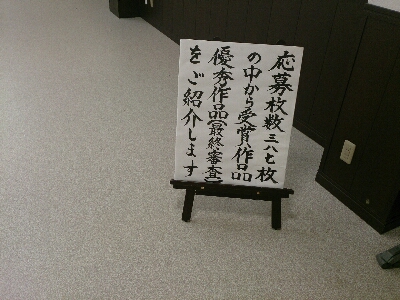 応募枚数三八七枚
の中から受賞八作品
優秀作品(最終審査)
をご紹介します